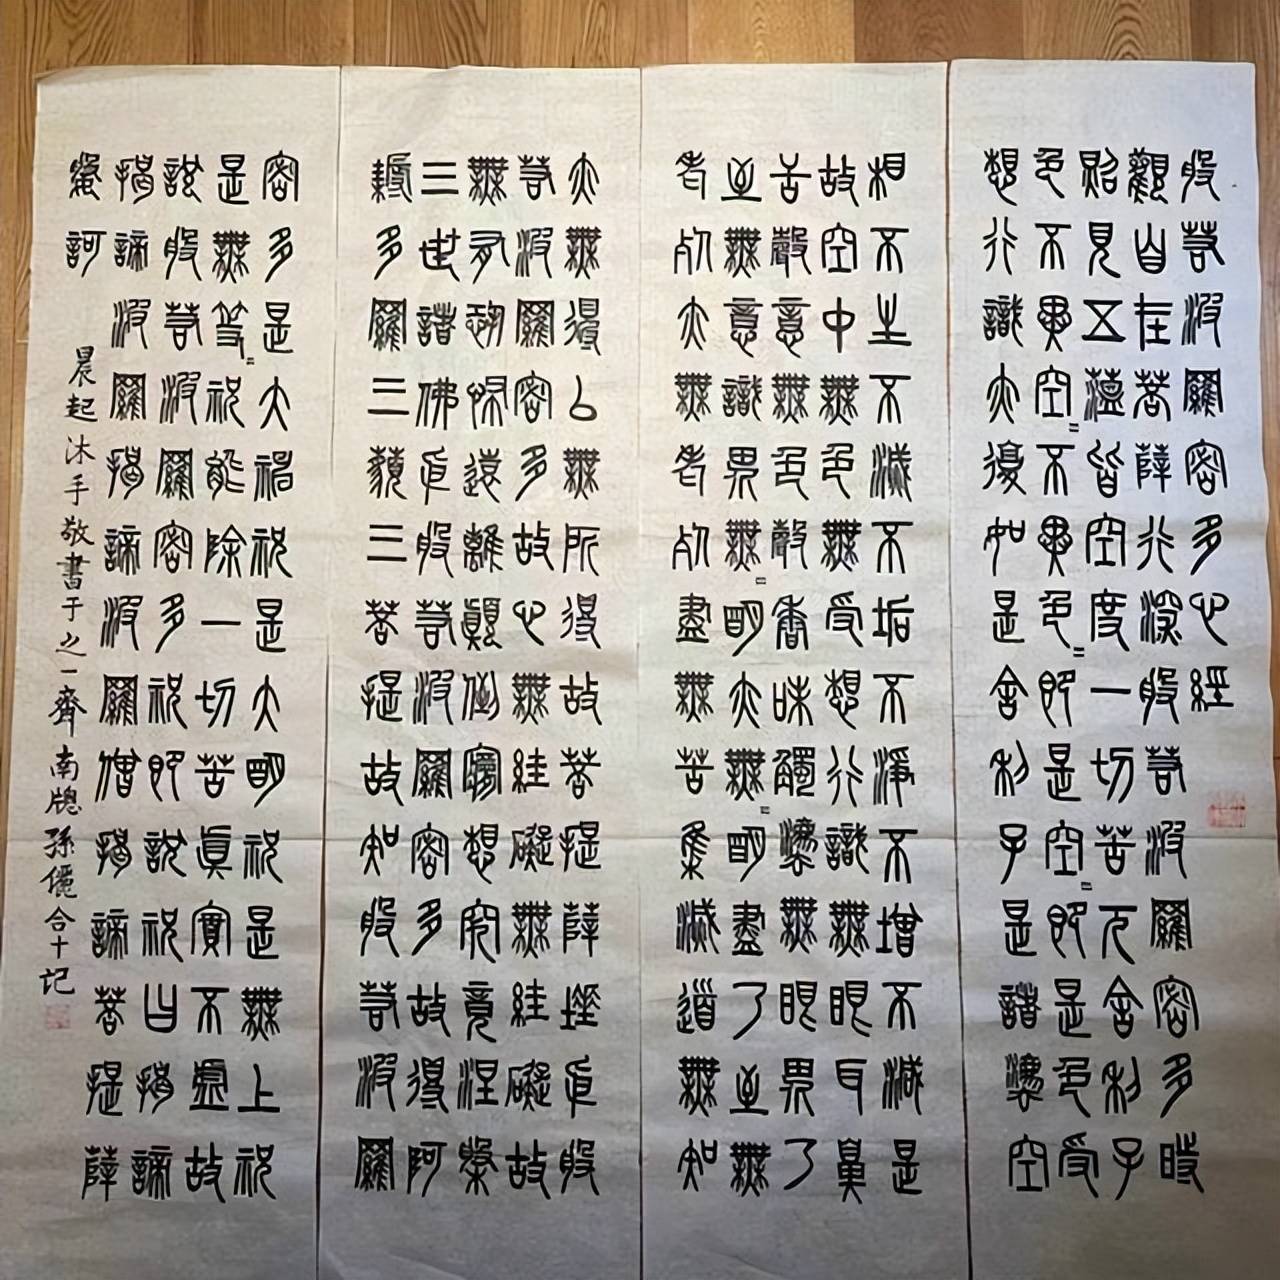 般若波羅密多心經
觀自在菩薩行深般若波羅密多時
照見五蘊皆空度一切苦厄舍利子
色不異空=不異色=即是空=即是色受
想行識亦復如是舍利子是諸灋空
相不生不滅不垢不淨不增不減是
故空中無色無受想行識無眼耳鼻
舌聲意無色聲香味觸灋無眼界了
至無意識界無=明亦無=明盡了至無
老死亦無老死盡無苦集滅道無知
亦無得以無所得故菩提薩埵依般
若波羅密多故心無絓礙無絓礙故
無有恐怖遠離顛倒夢想究竟涅槃
三世諸佛依般若波羅密多故得阿
耨多羅三藐三菩提故知般若波羅
密多是大神祝是大明祝是無上祝
是無等=祝能除一切苦真實不虛故
說般若波羅密多祝即說祝曰揭諦
揭諦波羅揭諦波羅僧揭諦菩提薩
婆訶
晨起沐手敬書于之一齋南牕孫儷合十記